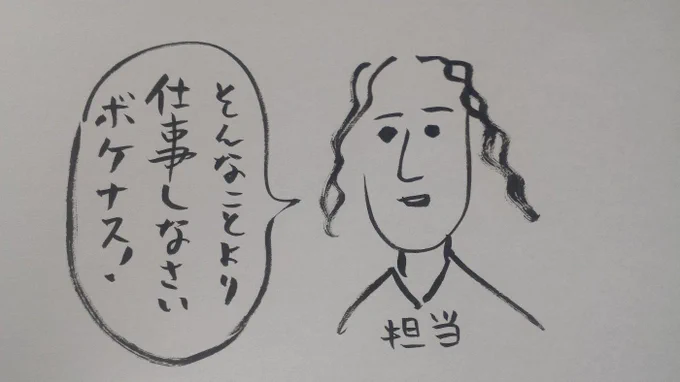 そんなことより
仕事しなさい
ボケナス!
担当